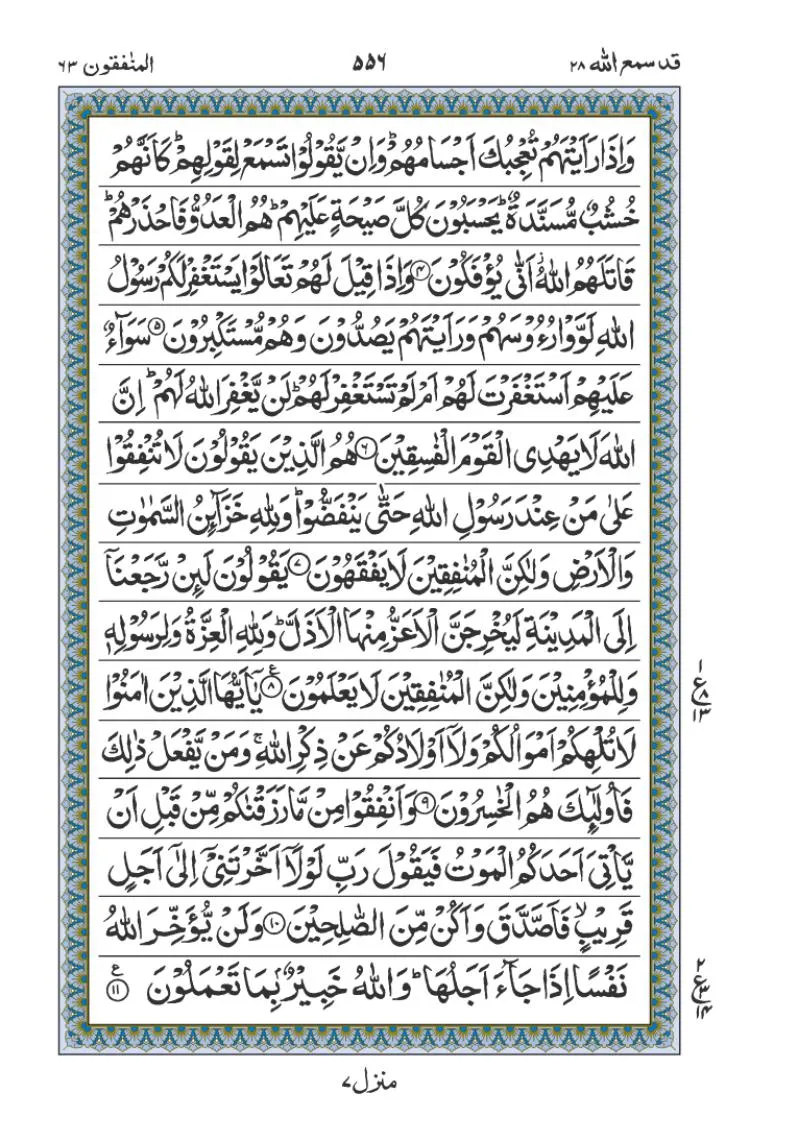 المنٰفقون ٦٣ ٥٥٦ قد سمع الله ٢٨
وَاِذَا رَاَيْتَهُمْ تُعْجِبُكَ اَجْسَامُهُمْ ؕ وَاِنْ يَّقُوْلُوْا تَسْمَعْ لِقَوْلِهِمْ ؕ كَاَنَّهُمْ
خُشُبٌ مُّسَنَّدَةٌ ؕ يَحْسَبُوْنَ كُلَّ صَيْحَةٍ عَلَيْهِمْ ؕ هُمُ الْعَدُوُّ فَاحْذَرْهُمْ ؕ
قَاتَلَهُمُ اللّٰهُ ؗ اَنّٰى يُؤْفَكُوْنَ ﴿۴﴾ وَاِذَا قِيْلَ لَهُمْ تَعَالَوْا يَسْتَغْفِرْ لَكُمْ رَسُوْلُ
اللّٰهِ لَوَّوْا رُءُوْسَهُمْ وَرَاَيْتَهُمْ يَصُدُّوْنَ وَهُمْ مُّسْتَكْبِرُوْنَ ﴿۵﴾ سَوَآءٌ
عَلَيْهِمْ اَسْتَغْفَرْتَ لَهُمْ اَمْ لَمْ تَسْتَغْفِرْ لَهُمْ ؕ لَنْ يَّغْفِرَ اللّٰهُ لَهُمْ ؕ اِنَّ
اللّٰهَ لَا يَهْدِى الْقَوْمَ الْفٰسِقِيْنَ ﴿۶﴾ هُمُ الَّذِيْنَ يَقُوْلُوْنَ لَا تُنْفِقُوْا
عَلٰى مَنْ عِنْدَ رَسُوْلِ اللّٰهِ حَتّٰى يَنْفَضُّوْا ؕ وَلِلّٰهِ خَزَآئِنُ السَّمٰوٰتِ
وَالْاَرْضِ وَلٰكِنَّ الْمُنٰفِقِيْنَ لَا يَفْقَهُوْنَ ﴿۷﴾ يَقُوْلُوْنَ لَئِنْ رَّجَعْنَاۤ
اِلَى الْمَدِيْنَةِ لَيُخْرِجَنَّ الْاَعَزُّ مِنْهَا الْاَذَلَّ ؕ وَلِلّٰهِ الْعِزَّةُ وَلِرَسُوْلِهٖ
وَلِلْمُؤْمِنِيْنَ وَلٰكِنَّ الْمُنٰفِقِيْنَ لَا يَعْلَمُوْنَ ﴿۸﴾ ع يٰۤاَيُّهَا الَّذِيْنَ اٰمَنُوْا
١ ع ٨ ١٣
لَا تُلْهِكُمْ اَمْوَالُكُمْ وَلَاۤ اَوْلَادُكُمْ عَنْ ذِكْرِ اللّٰهِ ۚ وَمَنْ يَّفْعَلْ ذٰلِكَ
فَاُولٰٓئِكَ هُمُ الْخٰسِرُوْنَ ﴿۹﴾ وَاَنْفِقُوْا مِنْ مَّا رَزَقْنٰكُمْ مِّنْ قَبْلِ اَنْ
يَّاْتِىَ اَحَدَكُمُ الْمَوْتُ فَيَقُوْلَ رَبِّ لَوْلَاۤ اَخَّرْتَنِىْۤ اِلٰٓى اَجَلٍ
قَرِيْبٍ ۙ فَاَصَّدَّقَ وَاَكُنْ مِّنَ الصّٰلِحِيْنَ ﴿۱۰﴾ وَلَنْ يُّؤَخِّرَ اللّٰهُ
نَفْسًا اِذَا جَآءَ اَجَلُهَا ؕ وَاللّٰهُ خَبِيْرٌۢ بِمَا تَعْمَلُوْنَ ﴿۱۱﴾ ع
٢ ع ٣ ١٤
منزل ٧